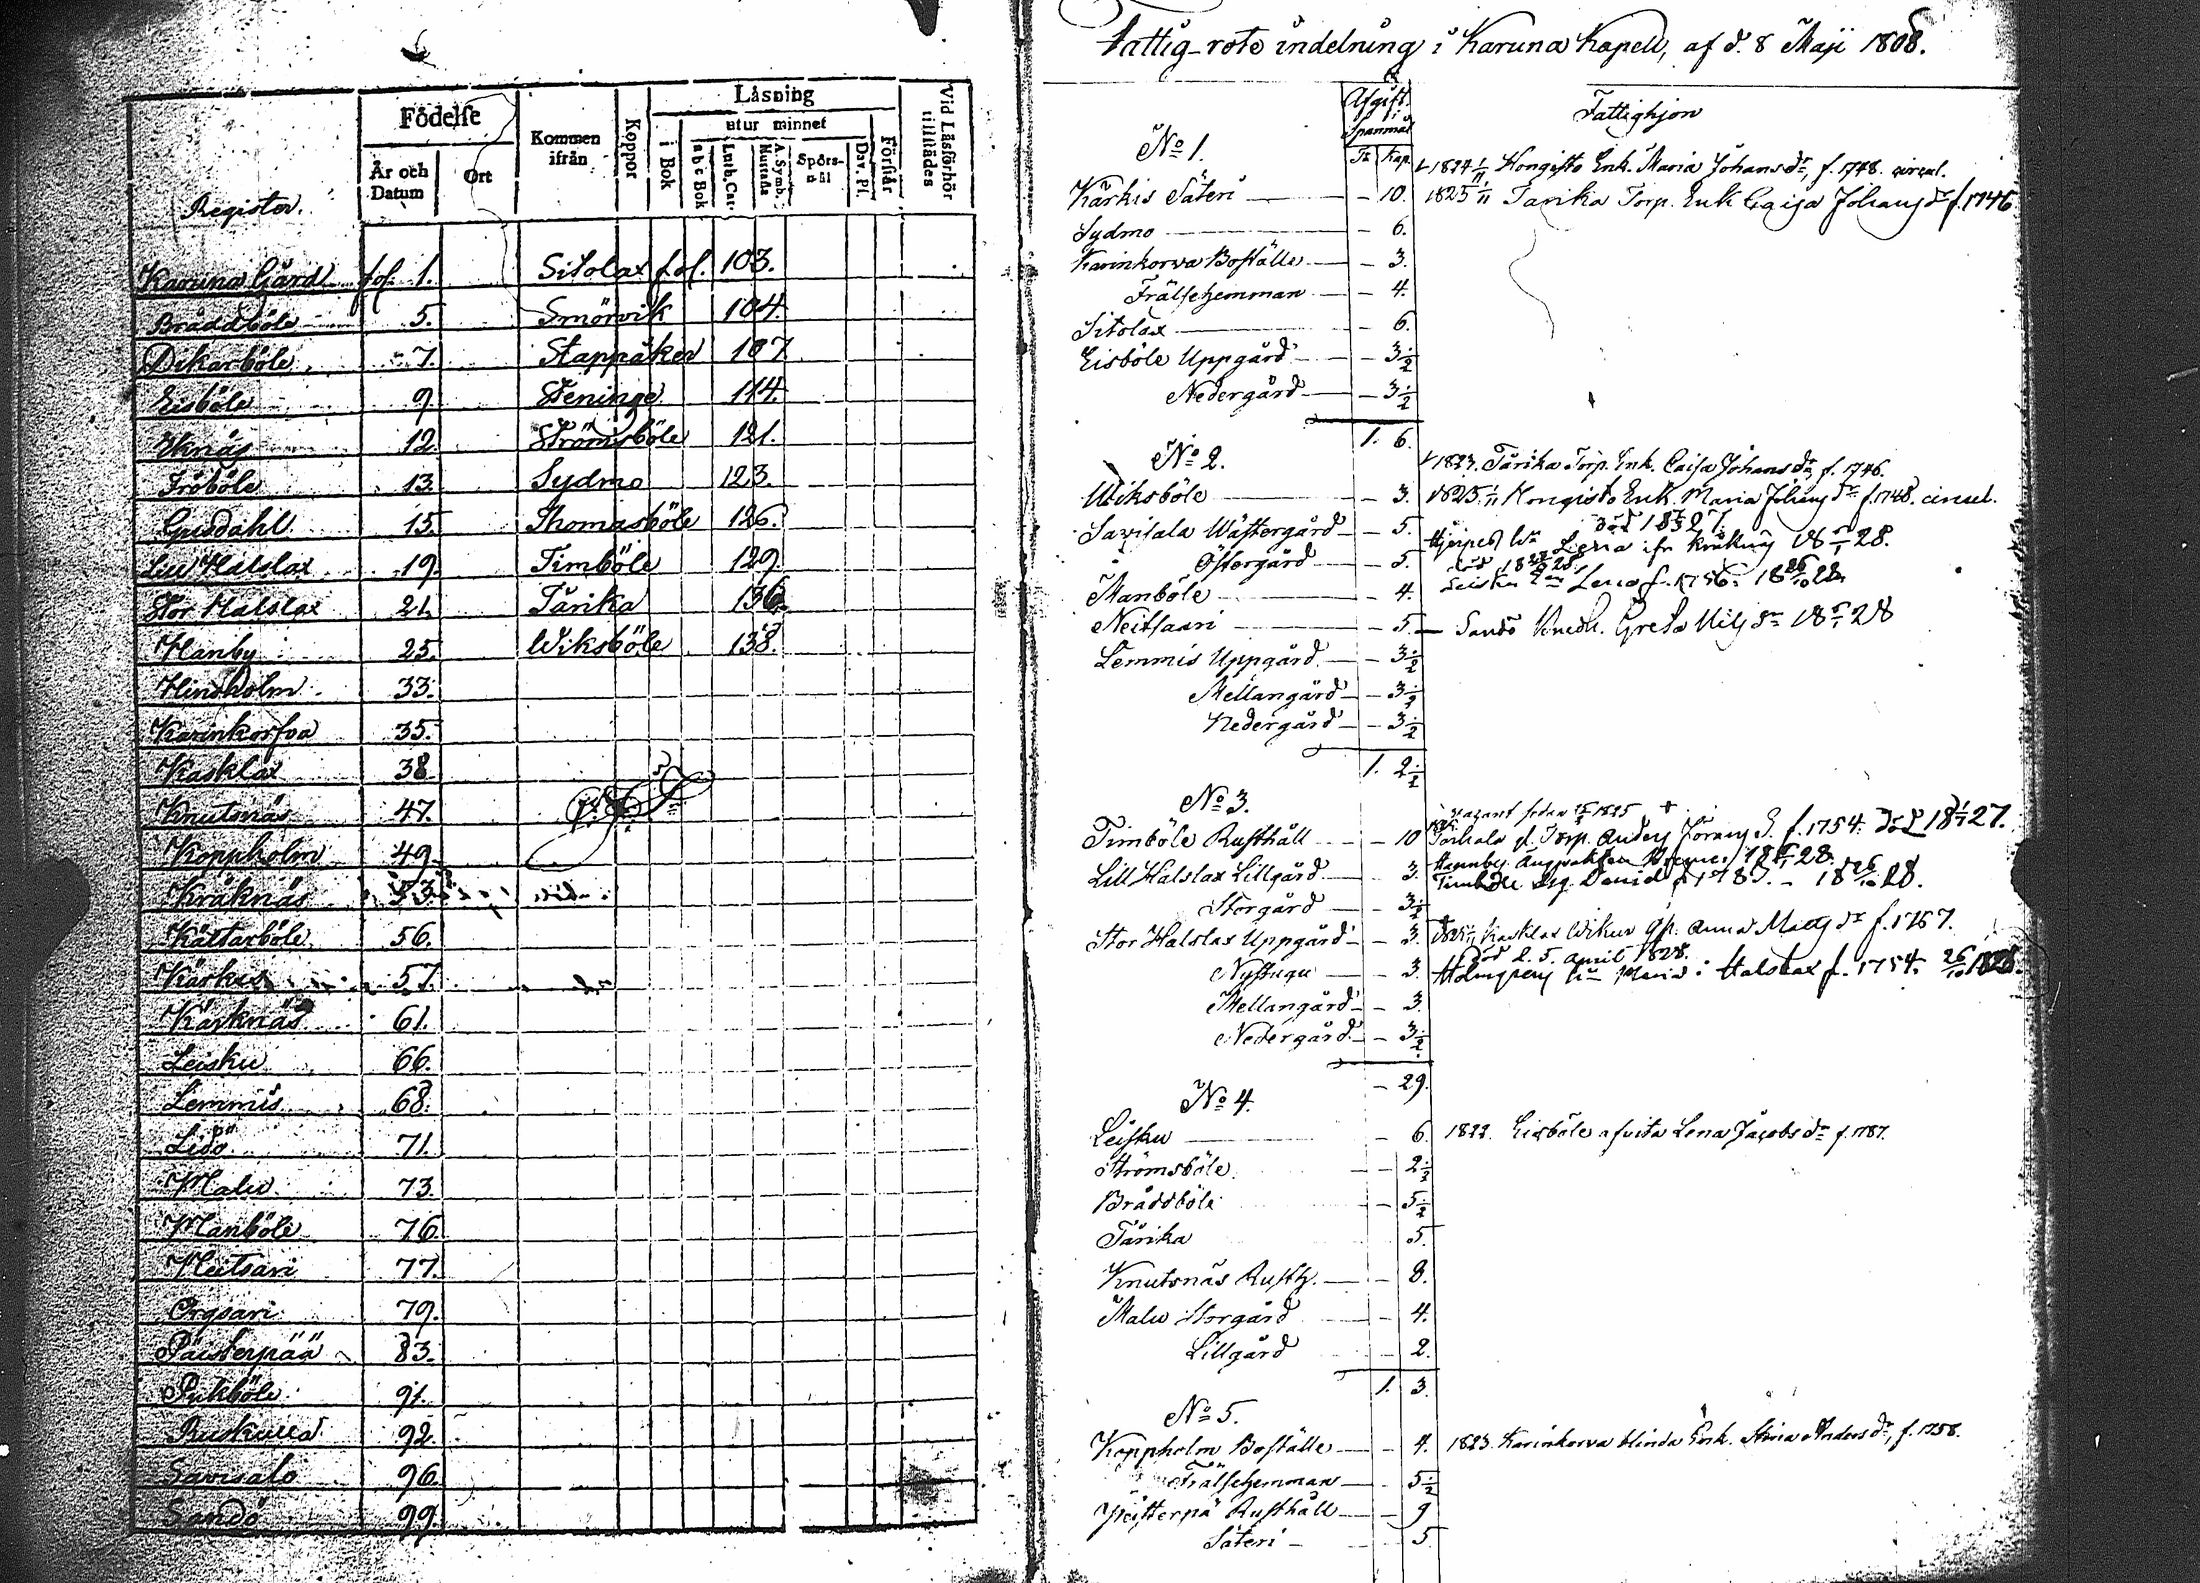 Register.
Födelse
År och Datum
Ort
Kommen ifrån
Koppor
Läsning
i Bok
utur minnet
a b c Bok
Luth. Cat.
A. Symb.
Hustafla
Spörsmål
Dav. Ps.
Förstår
Vid Läsförhör tillstädes
Karuna Gård fol. 1. Sitolax fol. 103.
Bråddböle 5. Smörvik 104.
Dikarböle 7. Stappåker 107
Eisböle 9 Steninge 114.
Iknäs 12. Strömsböle 121.
Fröböle 13 Sydmo 123.
Gusdahl 15. Thomasböle 126.
Lill Halslax 19. Timböle 129.
Stor Halslax 21. Tärika 136.
Hanby 25. Wiksböle 138.
Hindholm 33.
Karinkorfva 35.
Kasklax 38
Knutsnäs 47.
Koppholm 49.
Kräknäs 53
Kättarböle 56.
Kärkis 57.
Kärknäs 61.
Leisku 66.
Lemmis 68.
Lidö 71.
Malu 73.
Manböle 76.
Neitsari 77.
Orgsari 79.
Päisterpää 83.
Pukböle 91.
Ruskulla 92.
Savisalo 96.
Sandö 99.
Fattig-rote indelning i Karuna Kapell, af d. 8 Maji 1808.
Afgift i Spanmål
Fattighjon
Tr. Kap.
No 1.
1824 1/11 Hongisto Enk. Maria Johansdr, f. 1748.
Kärkis Säteri — 10. 1825 1/11 Tärika Torp. Enk Caisa Johansdr f. 1746
Sydmo — 6.
Karinkorva Boställe — 3.
Frälsehemman — 4.
Sitolax — 6.
Eisböle Uppgård — 3 1/2
Nedergård — 3 1/2
1. 6.
No 2.
1823. Tärika Torp. Enk. Caisa Johansdr, f. 1746.
Wiksböle — 3. 1825 1/11 Hongisto Enk. Maria Johansdr f. 1748.
Savisala Wästergård — 5.
Östergård — 5.
Manböle — 4. Leisku Lena f. 1756.
Neitsaari — 5 — Sandö Greta Nilsdr
Lemmis Uppgård — 3 1/2
Mellangård — 3 1/2
Nedergård — 3 1/2
1. 2 1/2
No 3.
vacant sedan 1825 +
Timböle Rusthåll — 10 Torp. Anders Jörans S. f. 1754. död 18 27.
Lill Halslax Lillgård — 3.
Timböle David f 1787.
Storgård — 3 1/2
Stor Halslax Uppgård — 3. Kasklax Anna Mattsdr f. 1757.
död d. 5. April 1828.
Nystugu — 3. Maria i Halslax f. 1754. 26/10 1828.
Mellangård — 3.
Nedergård — 3 1/2
— 29.
No 4.
Leisku — 6. 1822. Eisböle afvita Lena Jacobsdr f. 1787.
Strömsböle — 2 1/2
Bråddböle — 5 1/2
Tärika 5.
Knutsnäs Rusth. — 8.
Malu Storgård — 4.
Lillgård 2.
1. 3.
No 5.
Koppholm Boställe — 4. 1823. Karinkorva blinda Enk. Stina Andersdr, f. 1758.
Frälsehemman — 5 1/2
Päisterpä Rusthåll — 9
Säteri — 5